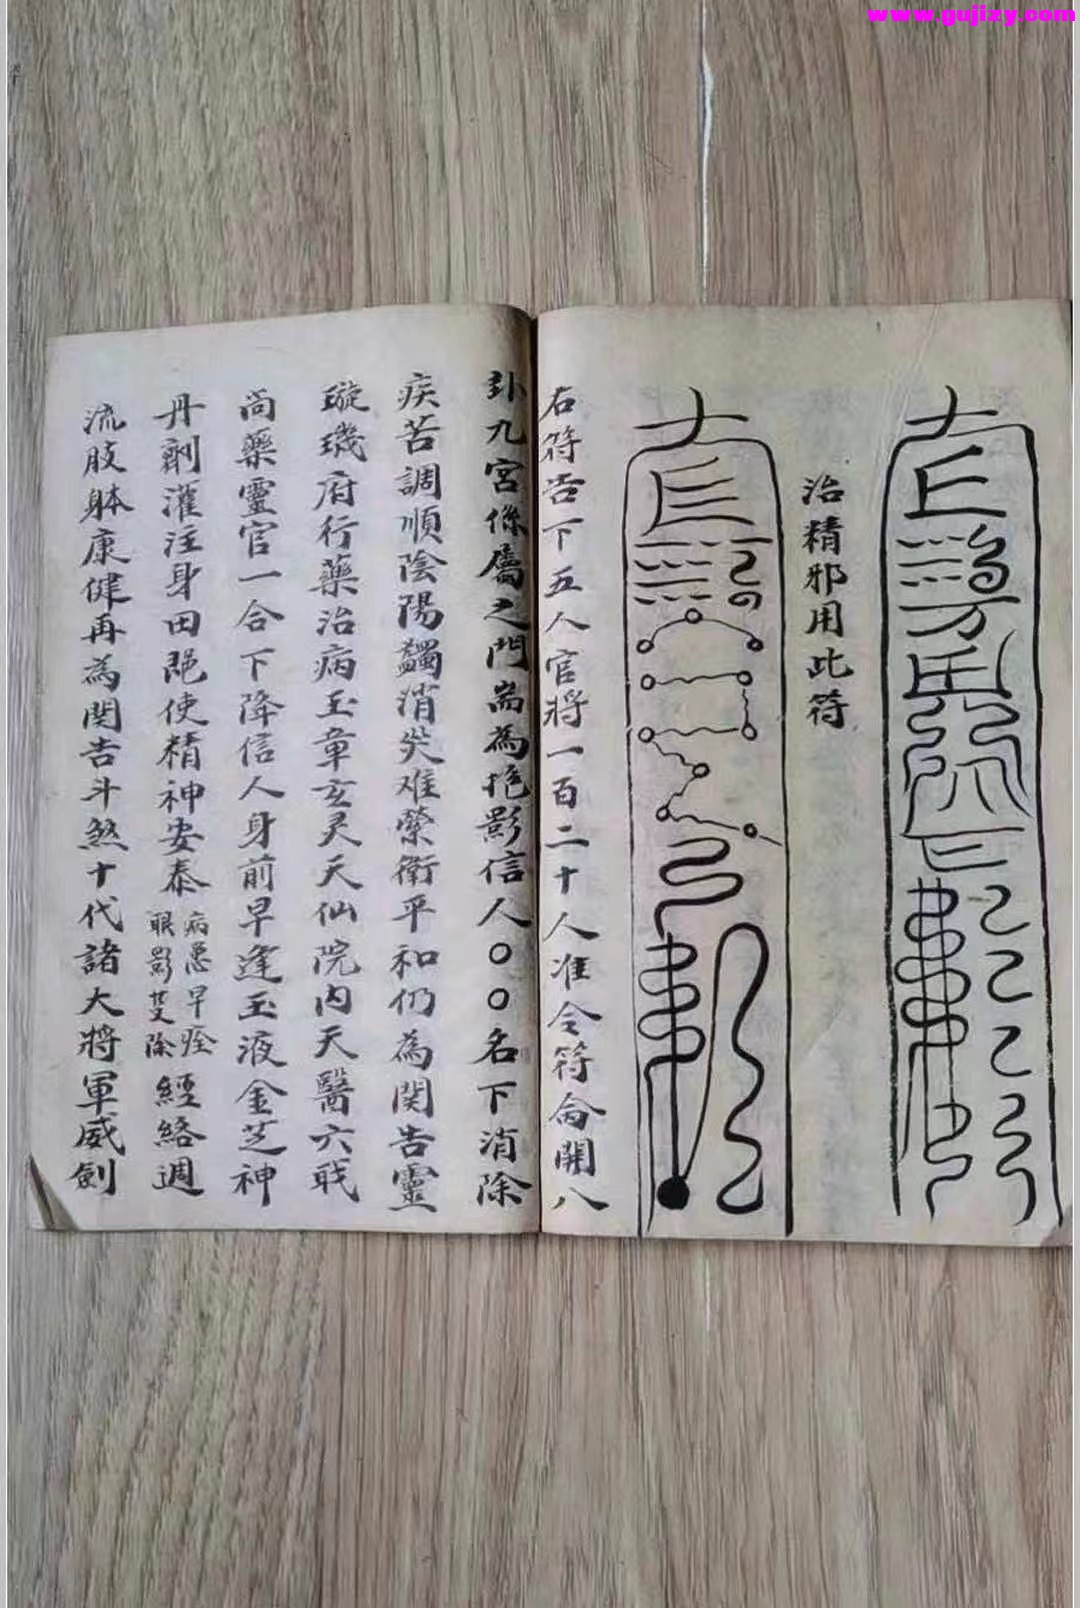 www.gujizy.com
治精邪用此符
右符告下五人官將一百二十人准令符命開八
卦九宮係屬之門耑為抱影信人〇〇名下消除
疾苦調順陰陽蠲消災难榮衛平和仍為関告靈
璇璣府行藥治病玉章玄灵天仙院内天醫六戝
尚藥靈官一合下降信人身前早逢玉液金芝神
丹劑灌注身田兠使精神安泰
病患早痊
眼影䒥除
經絡週
流肢躰康健再為関告斗煞十代諸大將軍威劍